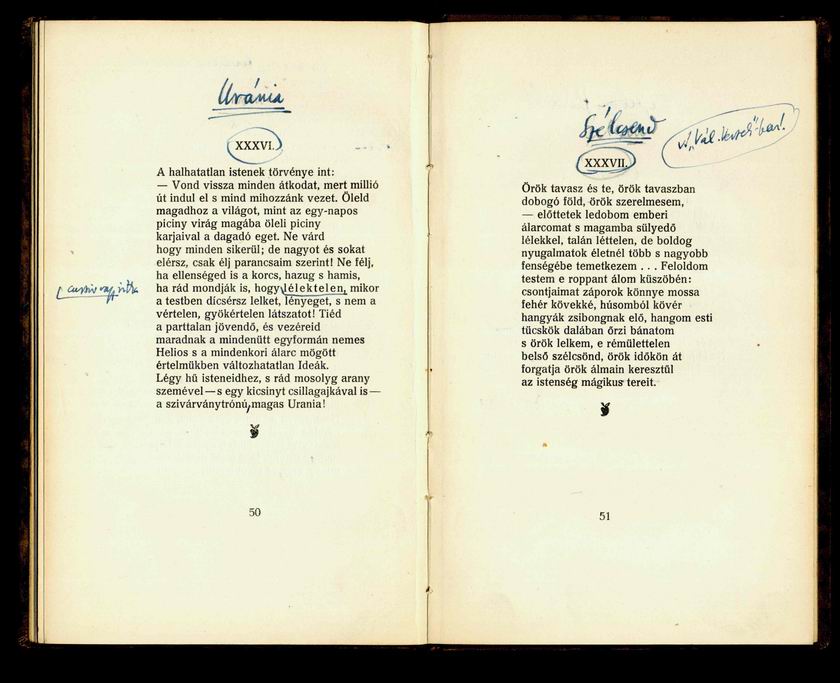 Uránia
XXXVI.
A halhatatlan istenek törvénye int:
— Vond vissza minden átkodat, mert millió
út indul el s mind mihozzánk vezet. Öleld
magadhoz a világot, mint az egy-napos
piciny virág magába öleli piciny
karjaival a dagadó eget. Ne várd
hogy minden sikerül; de nagyot és sokat
elérsz, csak élj parancsaim szerint! Ne félj,
ha ellenséged is a korcs, hazug s hamis,
ha rád mondják is, hogy lélektelen, mikor
a testben dícsérsz lelket, lényeget, s nem a
vértelen, gyökértelen látszatot! Tiéd
a parttalan jövendő, és vezéreid
maradnak a mindenütt egyformán nemes
Helios s a mindenkori álarc mögött
értelmükben változhatatlan Ideák.
Légy hű isteneidhez, s rád mosolyg arany
szemével — s egy kicsinyt csillagajkával is —
a szivárványtrónú, magas Urania!
50
Szélcsend
A „Vál. Versek"-ban!
XXXVII.
Örök tavasz és te, örök tavaszban
dobogó föld, örök szerelmesem,
— előttetek ledobom emberi
álarcomat s magamba sülyedő
lélekkel, talán léttelen, de boldog
nyugalmatok életnél több s nagyobb
fenségébe temetkezem . . . Feloldom
testem e roppant álom küszöbén:
csontjaimat záporok könnye mossa
fehér kövekké, húsomból kövér
hangyák zsibongnak elő, hangom esti
tücskök dalában őrzi bánatom
s örök lelkem, e rémülettelen
belső szélcsönd, örök időkön át
forgatja örök álmain keresztül
az istenség mágikus tereit.
51